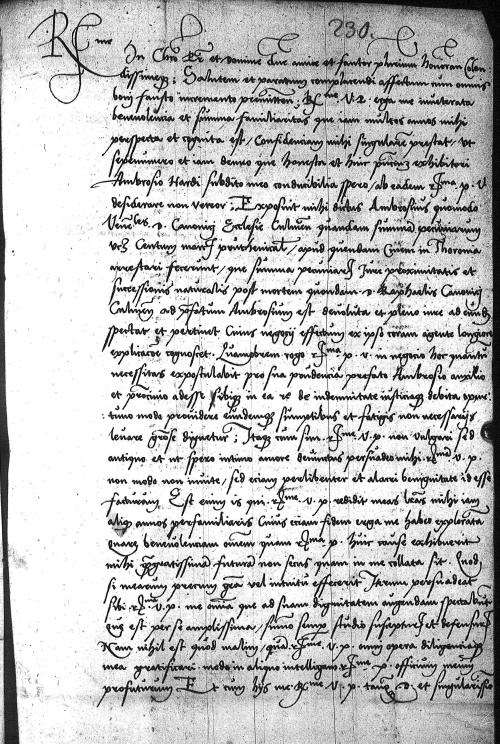 230.
R me
In Chro Pr et domine Dne amice et fautor plurimum honoran Colen
dissimeqz; Salutem et paratum complacendi affectum cum omnis
boni fausto incremento premitten; R me V. P. erga me inveterata
benevolencia et summa familiaritas que iam multos annos mihi
perspecta et cognita est, Confidenciam mihi singularem prestat, ut
sepenumero et iam denuo que honesta et huic pntium exhibitori
Ambrosio Hardi subdito meo conducibilia spero, ab eadem r ma p. V
desiderare non vereor; Exposuit mihi dictus Ambrosius quomodo
Venles d. Canonici Ecclesie Culmen quandam summam pecuniarum
vcz Centum marcis pruthenical, apud quendam Civem in Thoronia
arrestari fecerunt, que summa pecuniarz Jure proximitatis et
successionis naturalis post mortem quondam d. Raphaelis Canonici
Culmen ad pfatum Ambrosium est devoluta et pleno iure ad eundz
spectat et pertinet Cuius negocij effectum ex ipso coram agente longiori
explicacoe cognoscet. Quamobrem rogo r ma p. v. in negocio hoc quantum
necessitas expostulabit pro sua prudencia prefato Ambrosio auxilio
et patrocinio adesse sibiqz in ea re de indemnitate iusticiaqz debita oportuno
timo modo providere eundemqz sumptibus et fatigis non necessarijs
levare grose dignetur; Itaqz cum sim r me v. p. non vulgari sed
antiquo et ut spero intimo amore devinctus persuadeo mihi r mam v. p.
non modo non invite, sed eciam perlibenter et alacri benignitate id esse
facturam. Est enim is qui r me v. p. reddit meas lras mihi iam
aliqz annos perfamiliaris Cuius eciam fidem erga me habeo exploratam
quare benevolenciam omem quam r ma p. huic cause exhibuerit
mihi pgratissimam futuram non secus quam in me collata sit. Quod
si mearum precum gra vel intuitu effecerit Iterum persuadeat
sibi r ma v. p. me omnia que ad suam dignitatem augendam spectabunt
que est per se amplissima, summo semp studio suscepturz et defensurz
Nam nihil est quod malim, quam r me v. p. omni opera diligenciaqz
mea gratificari modo in aliquo intelligam r me p. officium meum
profuturum Et cum hijs me R me V. p. tanqz d. et singularissimo